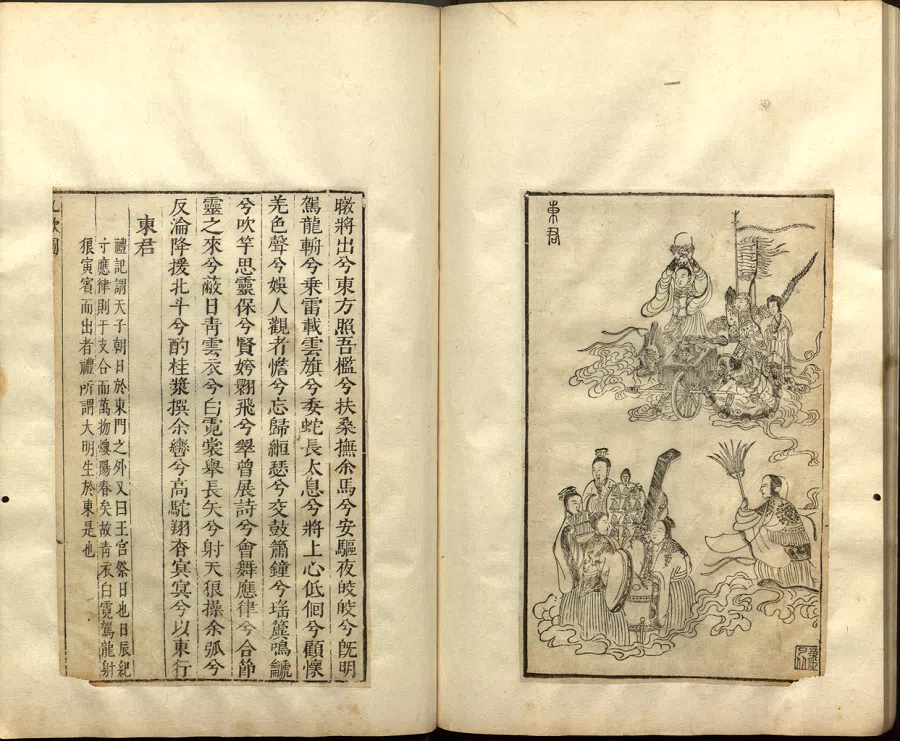 東君
暾將出兮東方照吾檻兮扶桑撫余馬兮安驅夜皎皎兮旣明
駕龍輈兮乘雷載雲旗兮委蛇長太息兮將上心低佪兮顧懷
羌色聲兮娛人觀者憺兮忘歸緪瑟兮交鼓簫鐘兮瑤簴鳴䶵
兮吹竽思靈保兮賢姱翾飛兮翠曾展詩兮會舞應律兮合節
靈之來兮蔽日青雲衣兮白霓裳舉長矢兮射天狼操余弧兮
反淪降援北斗兮酌桂漿撰余轡兮高駝翔杳冥冥兮以東行
東君
禮記謂天子朝日於東門之外又曰王宮祭日也日辰紀
于應律則于支合而萬物燠陽春矣故青衣白霓駕龍射
狼寅賓而出者禮所謂大明生於東是也